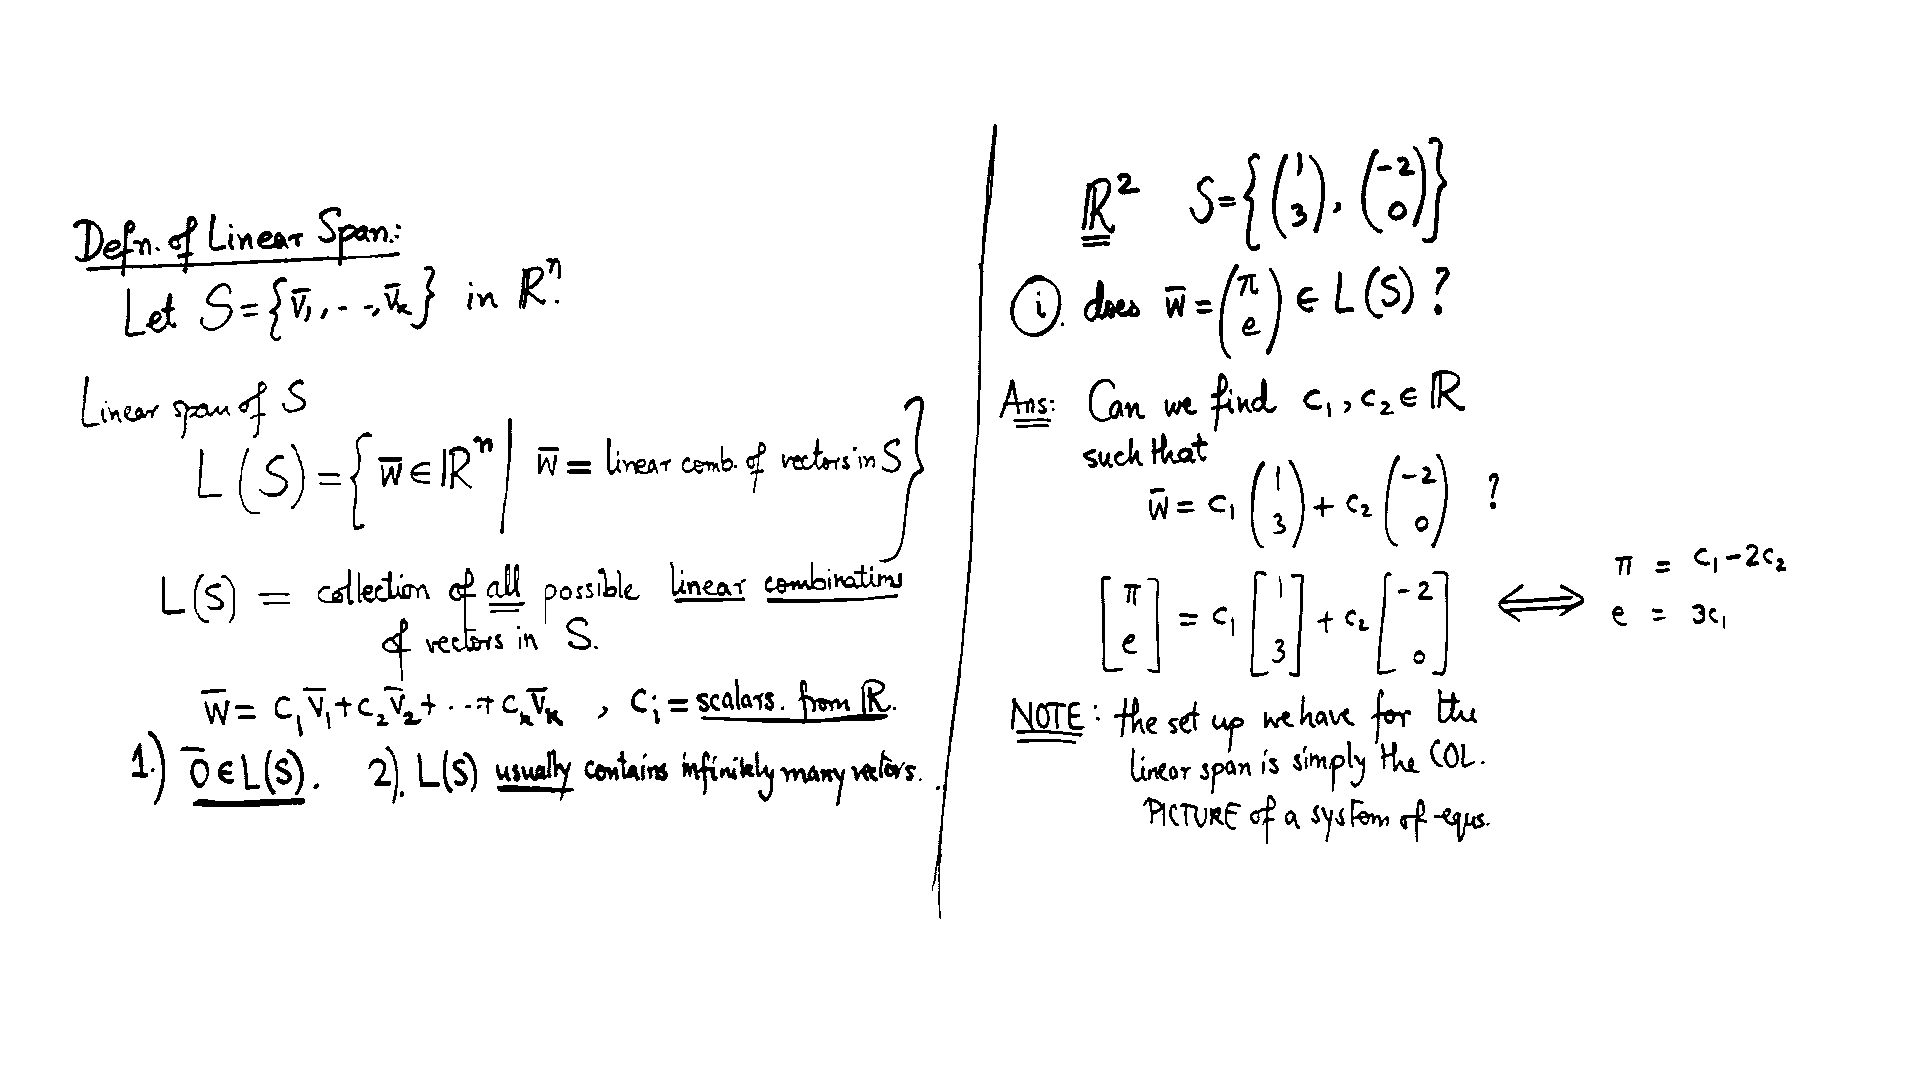 Defn. of Linear Span:
Let S={v̅₁,..,v̅ₖ} in ℝⁿ.
Linear span of S
L(S)={w̅∈ℝⁿ | w̅ = linear comb. of vectors in S}
L(S) = collection of all possible linear combinations
of vectors in S.
w̅ = c₁v̅₁+c₂v̅₂+...+cₖv̅ₖ , cᵢ = scalars. from ℝ.
1.) 0̅∈L(S). 2). L(S) usually contains infinitely many vectors.
ℝ² S={(1 3), (-2 0)}
i. does w̅=(π e) ∈ L(S)?
Ans: Can we find c₁,c₂∈ℝ
such that
w̅ = c₁(1 3) + c₂(-2 0) ?
[π e] = c₁[1 3] + c₂[-2 0] ⟺
π = c₁-2c₂
e = 3c₁
NOTE: the set up we have for the
linear span is simply the COL.
PICTURE of a system of eqns.